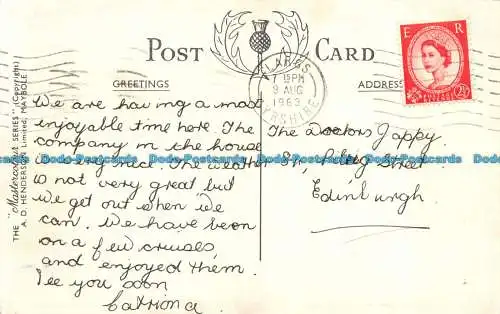 POST CARD
LARGS
7 15PM
9 AUG
1963
AYRSHIRE
E R
2½
GREETINGS
ADDRESS
THE "Mastercraft SERIES" (Copyright)
A. D. HENDERSON Limited, MAYBOLE
We are having a most
enjoyable time here. The
company in the house
is very nice. The weather
is not very great but
we get out when we
can. We have been
on a few cruises
and enjoyed them.
See you soon
Catriona
The Doctors Jappy
Street
Edinburgh
Dodo-Postcards Dodo-Postcards Dodo-Postcards Dodo-Postcards